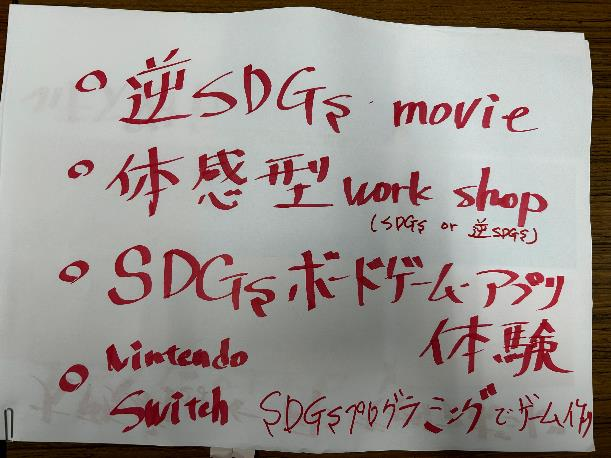 ○ 逆SDGs movie
○ 体感型 work shop
(SDGs or 逆SDGs)
○ SDGsボードゲーム・アプリ
体験
○ Nintendo
Switch SDGsプログラミングでゲーム作り